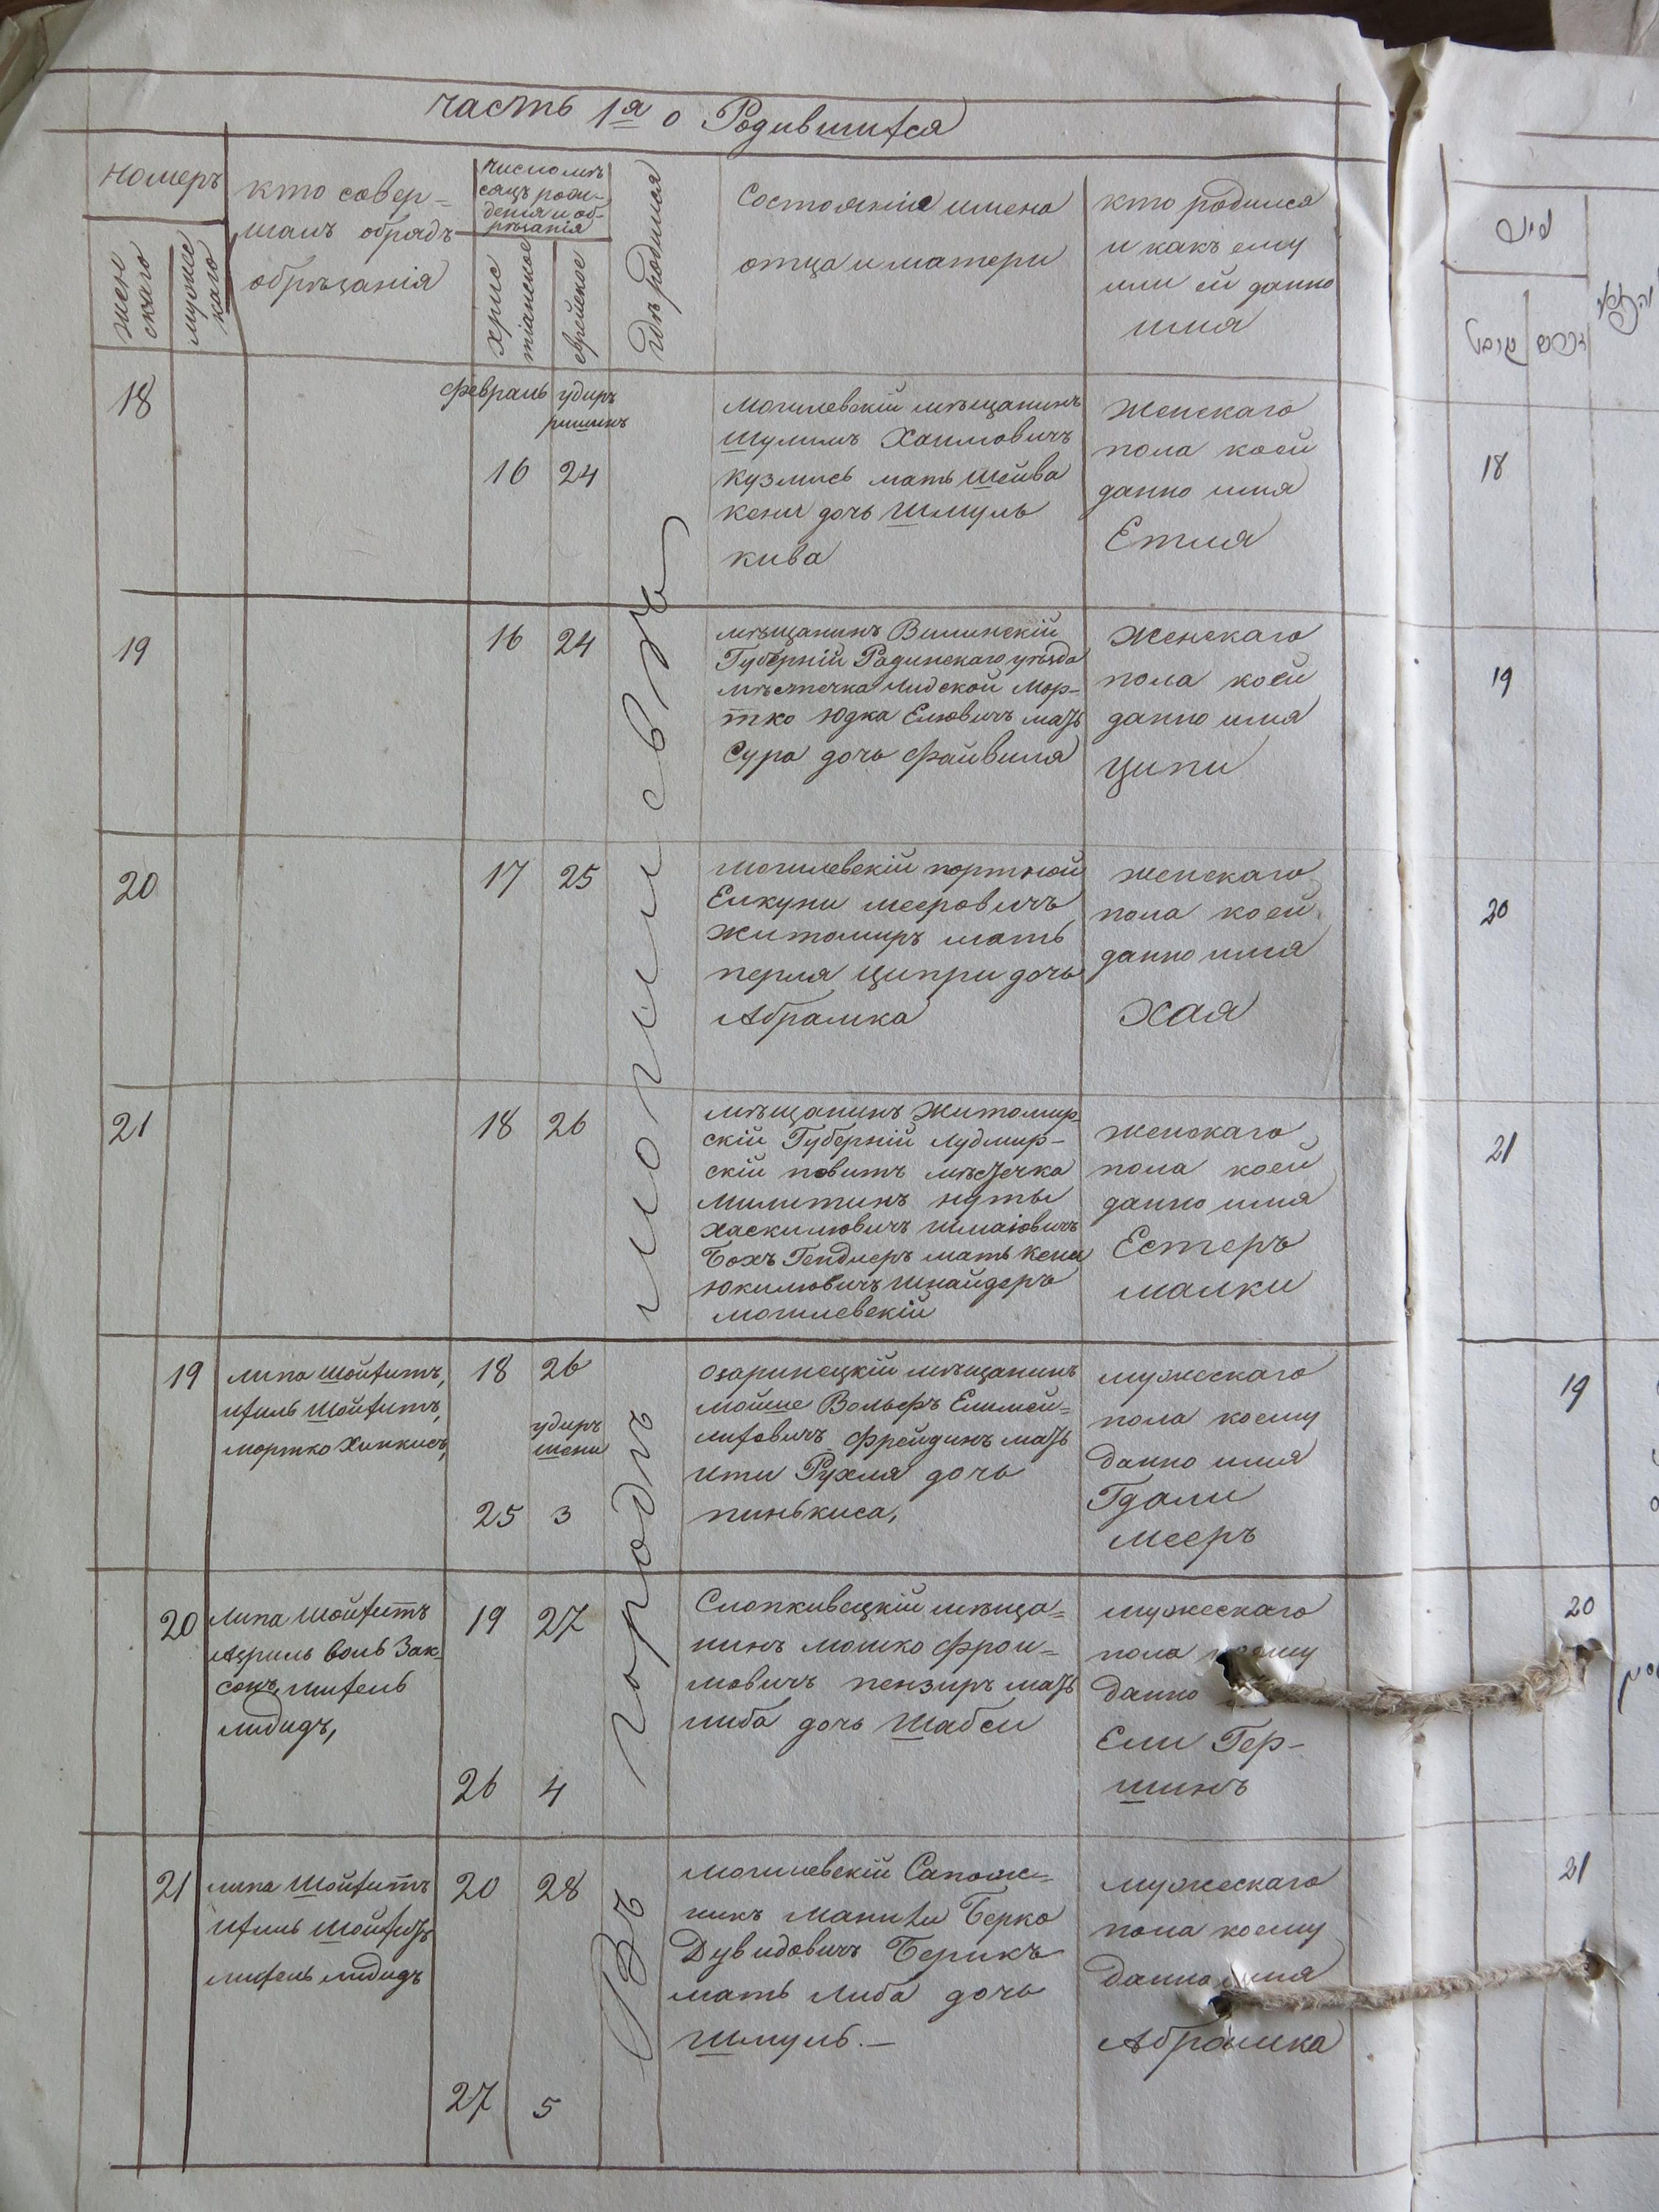 Часть 1я о Родившихся
номеръ
жен
скаго
мужес
каго
кто совер=
шалъ обрядъ
обрѣзанія
число мѣ
сяцъ рож-
денія и об-
рѣзанія
хрис
тіанское
еврейское
гдѣ родился
Состояніе имена
отца и матери
кто родился
и какъ ему
или ей данно
имя
18
февраль
удиръ
ришинъ
16 24
могилевскій мѣщанинъ
Шулимъ Хаимовичъ
кузмись мать Шейва
кени дочь Шмуль
кива
Женскаго
пола коей
данно имя
Етля
19
16 24
мѣщанинъ Вилинскій
Губерній Радинскаго уѣзда
мѣстечка Лидской Мор-
тко Юдка Елювичъ мать
Сура дочь Файвиля
Женскаго
пола коей
данно имя
ципи
20
17 25
могилевскій портной
Елкуни мееровичъ
житомиръ мать
перля ципри дочь
Абрамка
женскаго
пола коей
данно имя
Хая
21
18 26
мѣщанинъ Житомир
скій Губерній Лудмир-
скій повитъ мѣстечка
милитинъ нуты
хаскилювичъ шмаіовичъ
Бохъ Гендлеръ мать кени
юкилювичъ шнайдеръ
могилевскій
женскаго
пола коей
данно имя
Естеръ
малки
19
липа шойхитъ,
ихиль шойхитъ,
мортко Хинкисъ,
18 26
удиръ
шени
25 3
озаринецкій мѣщанинъ
мойше Вольфъ Елимей=
лиховичъ фрейдинъ мать
ити Рухля дочь
пинькиса,
мужескаго
пола коему
данно имя
Гдали
мееръ
20
липа шойхитъ
Азриль воль Зак-
сонъ, михель
лидидъ,
19 27
26 4
Слопкивецкій мѣща=
нинъ мошко фрои=
мовичъ пензиръ мать
либа дочь Шабси
мужескаго
пола коему
данно
Ели Гер-
шинъ
21
липа шойхитъ
ихиль шойхитъ
михель лидидъ
20 28
27 5
могилевскій Сапож=
никъ Манили Берко
Дувидовичъ Берикъ
мать Либа дочь
Шмуль.—
мужескаго
пола коему
данно имя
Абрамка
Въ городѣ могилевѣ
18
19
20
21
19
20
21